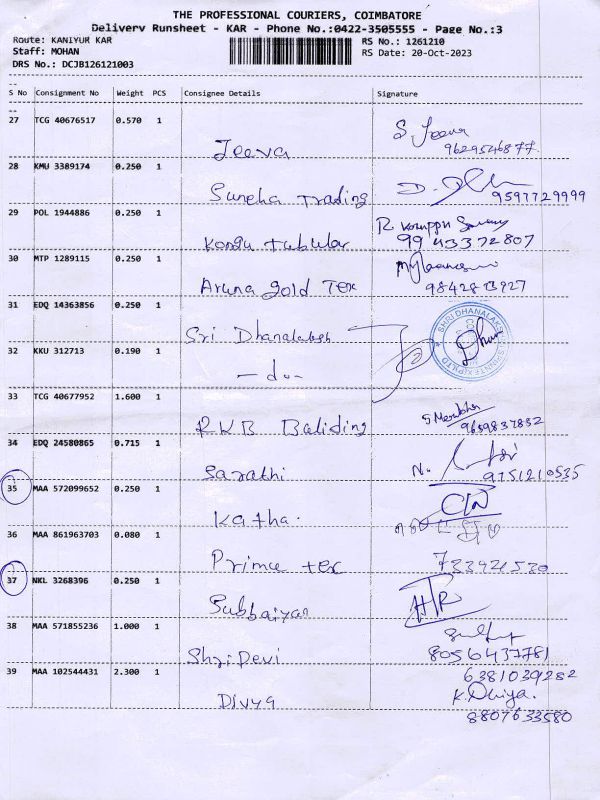 THE PROFESSIONAL COURIERS, COIMBATORE
Delivery Runsheet - KAR - Phone No.:0422-3505555 - Page No.:3
Route: KANIYUR KAR RS No.: 1261210
Staff: MOHAN RS Date: 20-Oct-2023
DRS No.: DCJB126121003
--
S No Consignment No Weight PCS Consignee Details Signature
--
27 TCG 40676517 0.570 1 S. Jeeva
Jeeva 9629546877
28 KMU 3389174 0.250 1
Suneha Trading 9597729999
29 POL 1944886 0.250 1 R
Kongu tubular 9943372807
30 MTP 1289115 0.250 1
Aruna gold Tex
31 EDQ 14363856 0.250 1
Sri Dhanalaksh
32 KKU 312713 0.190 1
-do-
33 TCG 40677952 1.600 1
RKB 9659837832
34 EDQ 24580865 0.715 1
Sarathi N. 9751210535
35 MAA 572099652 0.250 1
Katha
36 MAA 861963703 0.080 1
Prime tex 733921530
37 NKL 3268396 0.250 1
Subbaiyan
38 MAA 571855236 1.000 1
Shri Devi 8056437781
6381039282
39 MAA 102544431 2.300 1 K. Dhivya.
Divya 8807633580